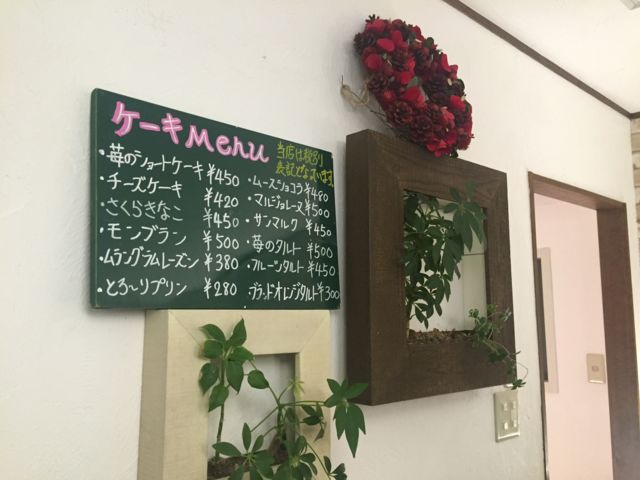 ケーキMenu
当店は税込り
表記でございます。
・苺のショートケーキ ¥450
・チーズケーキ ¥420
さくらきなこ ¥450
・モンブラン ¥500
・ムラングラムレーズン ¥380
・とろ〜りプリン ¥280
・ムースショコラ ¥480
・マルジョレーヌ ¥500
・サンマルク ¥450
・苺のタルト ¥500
・フルーツタルト ¥450
ブラッドオレンジタルト ¥300